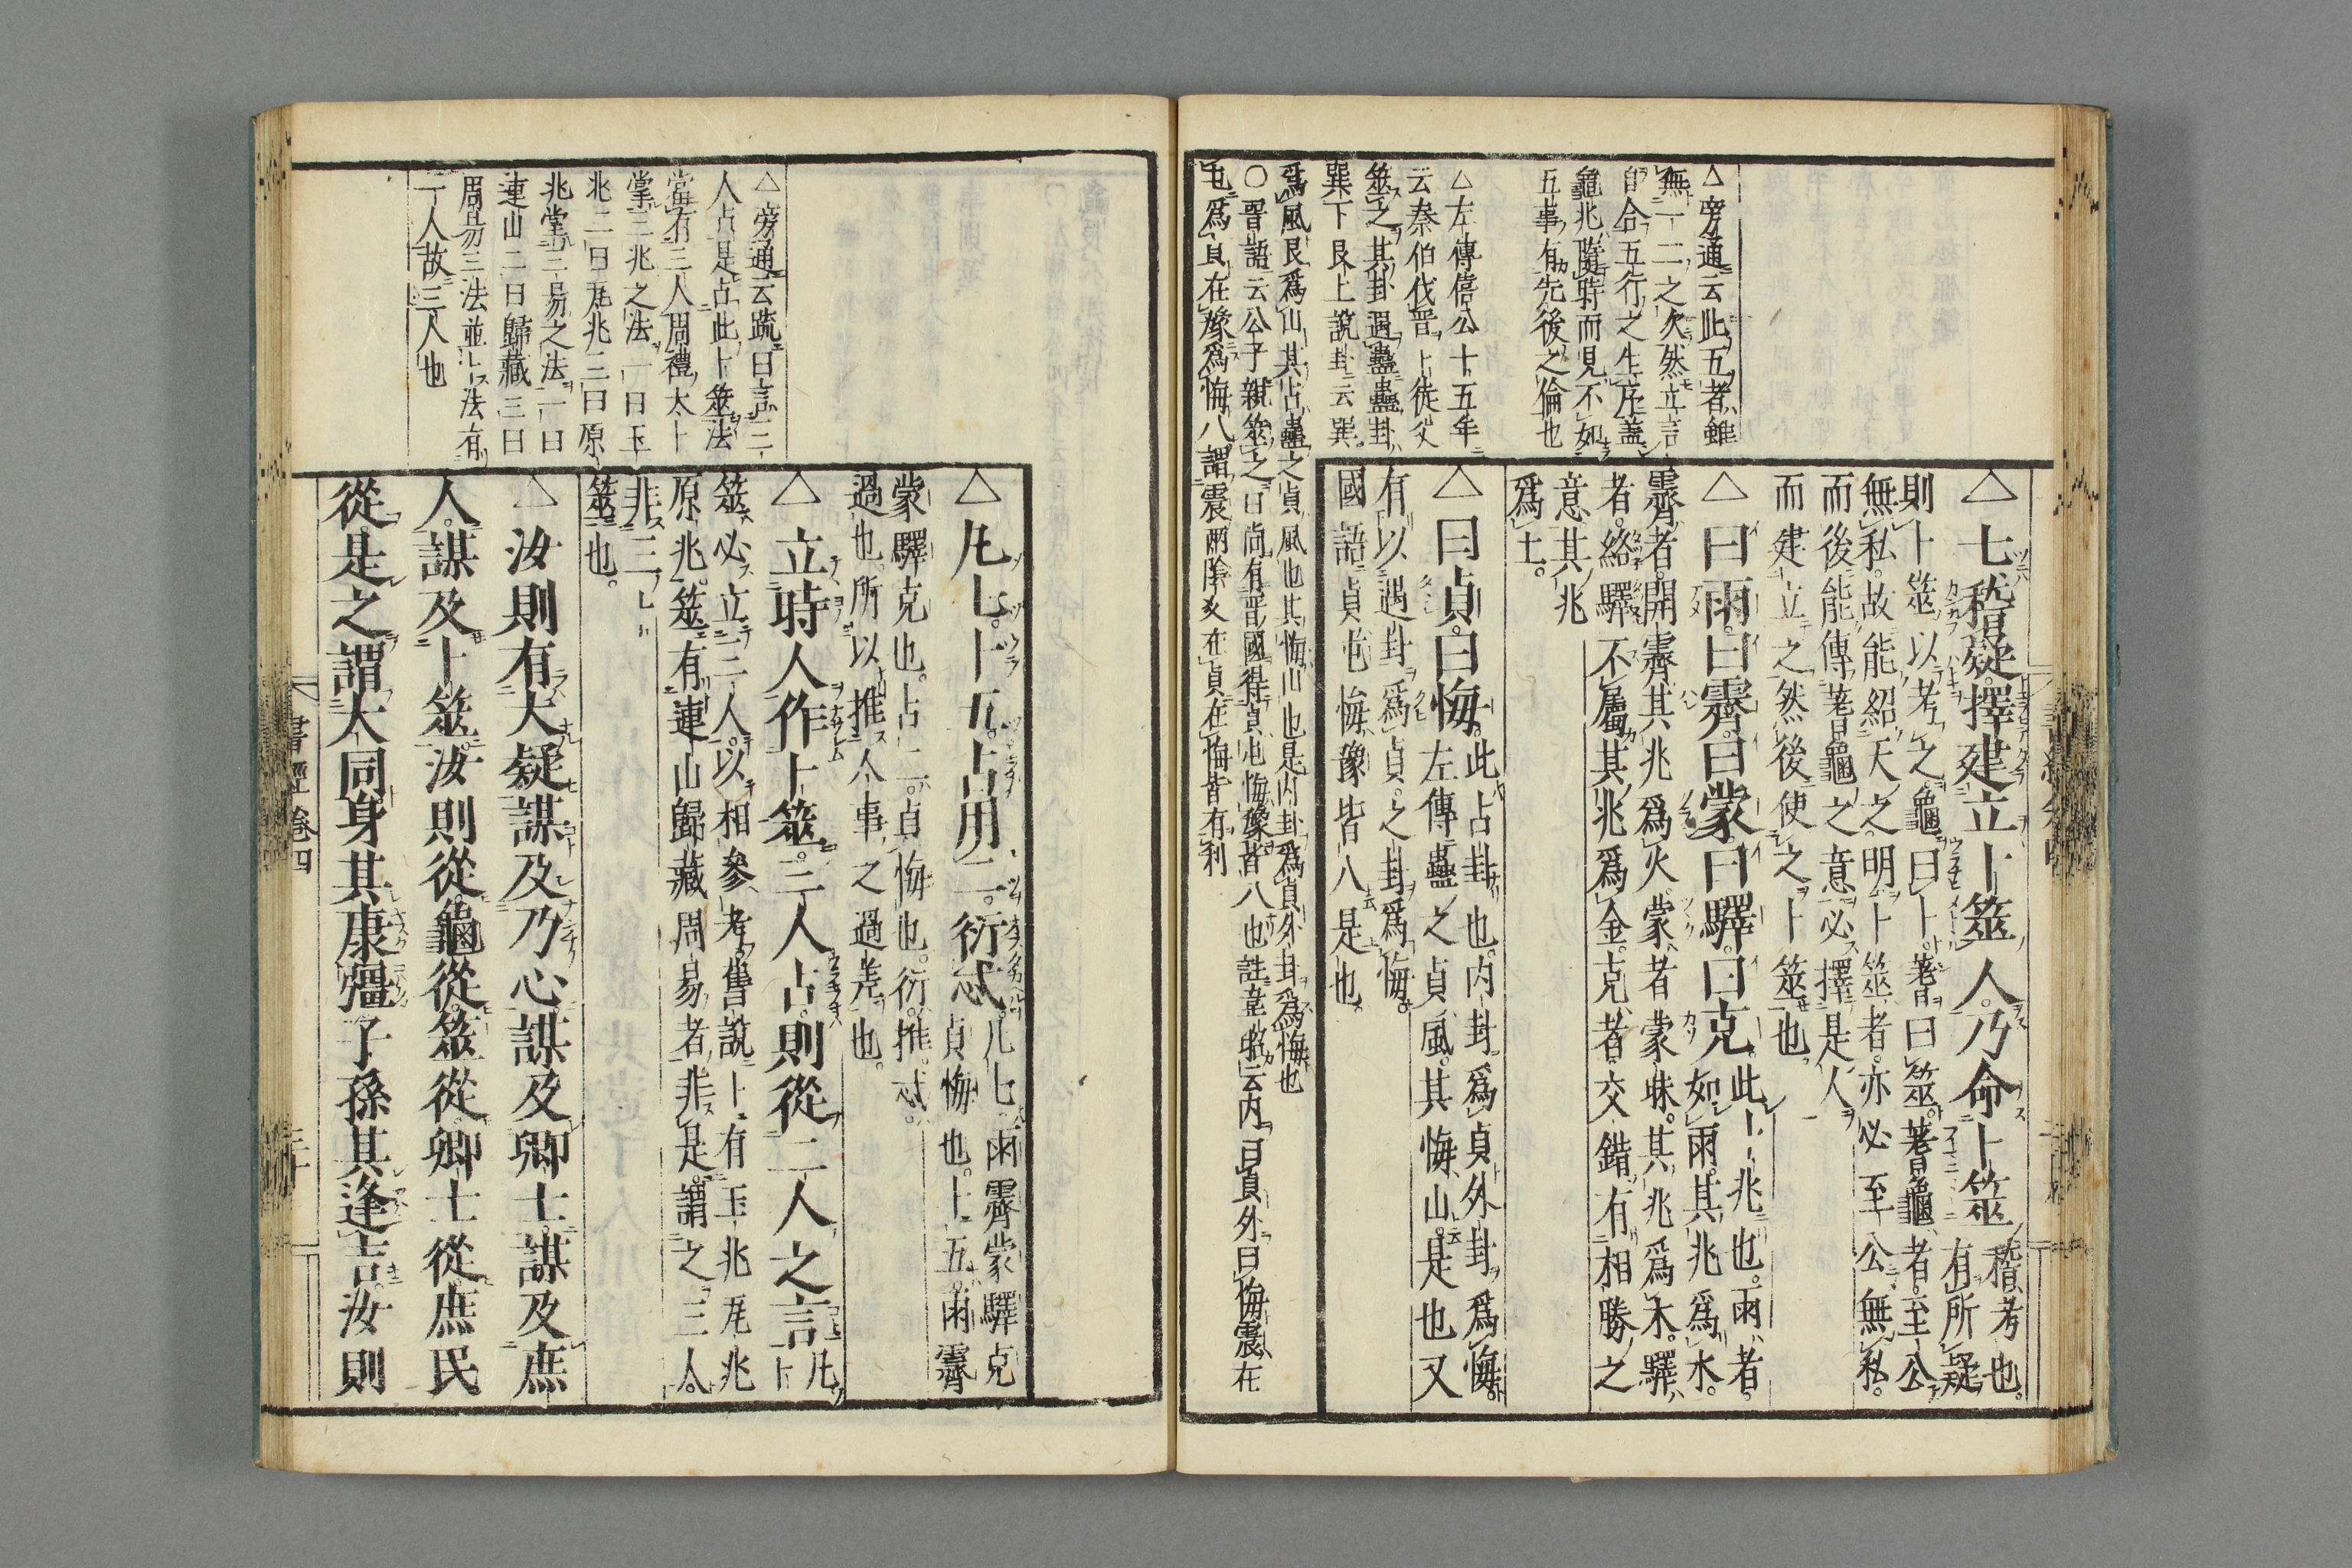 △旁通云此五者雖
無一二之次然立言
自合五行之生序蓋
龜兆隨時而見不如
五事有先後之倫也
△左傳僖公十五年
云秦伯伐晉卜徒父
筮之其卦遇蠱蠱卦
巽下艮上說卦云巽
爲風艮爲山其占蠱之貞風也其悔山也是内卦爲貞外卦爲悔也
○晋語云公子親筮之曰尚有晋國得貞屯悔豫皆八也註韋昭云内曰貞外曰悔震在
屯爲貞在豫爲悔八謂震兩陰爻在貞在悔皆有利
△七稽疑擇建立卜筮人乃命卜筮
稽考也
有所疑
則卜筮以考之龜曰卜蓍曰筮蓍龜者至公
無私故能紹天之明卜筮者亦必至公無私
而後能傳蓍龜之意必擇是人
而建立之然後使之卜筮也
△曰雨曰霽曰蒙曰驛曰克
此卜兆也雨者
如雨其兆爲水
霽者開霽其兆爲火蒙者蒙昧其兆爲木驛
者絡驛不屬其兆爲金克者交錯有相勝之
意其兆
爲土
△曰貞曰悔
此占卦也内卦爲貞外卦爲悔
左傳蠱之貞風其悔山是也又
有以遇卦爲貞之卦爲悔
國語貞屯悔豫皆八是也
△旁通云疏曰言三
人占是占此卜筮法
當有三人周禮太卜
掌三兆之法一曰玉
兆二曰瓦兆三曰原
兆掌三易之法一曰
連山二曰歸藏三曰
周易三法並卜法有
一人故三人也
△凡七卜五占用二衍忒
凡七雨霽蒙驛克
貞悔也卜五雨霽
蒙驛克也占二貞悔也衍推忒
過也所以推人事之過差也
△立時人作卜筮三人占則從二人之言
凡卜
筮必立三人以相參考舊說卜有玉兆瓦兆
原兆筮有連山歸藏周易者非是謂之三人
非三卜
筮也
△汝則有大疑謀及乃心謀及卿士謀及庶
人謀及卜筮汝則從龜從筮從卿士從庶民
從是之謂大同身其康彊子孫其逢吉汝則
書經卷四
三十